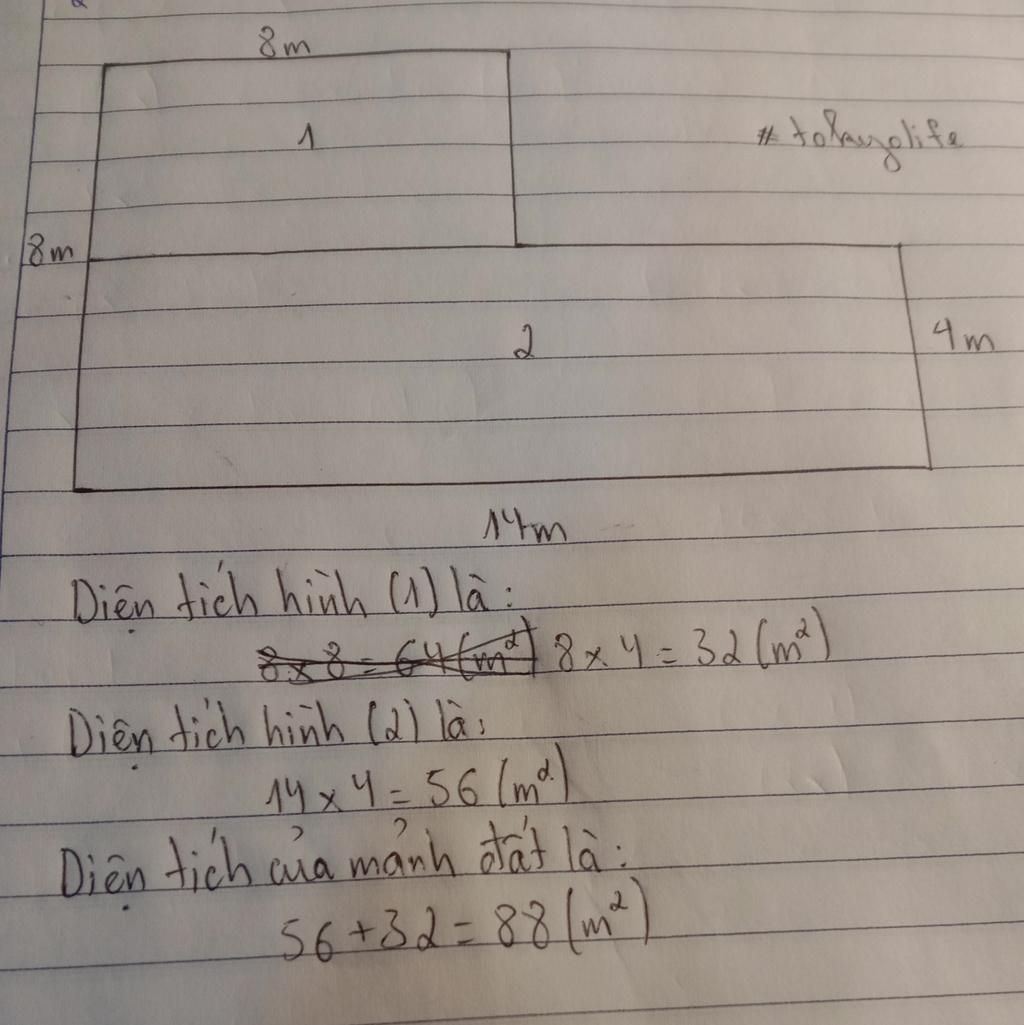 8m
1
# tokuyolife
8m
2
4m
14m
Diện tích hình (1) là:
8 x 8 = 64 (m²) 8 x 4 = 32 (m²)
Diện tích hình (2) là:
14 x 4 = 56 (m²)
Diện tích của mảnh đất là:
56 + 32 = 88 (m²)